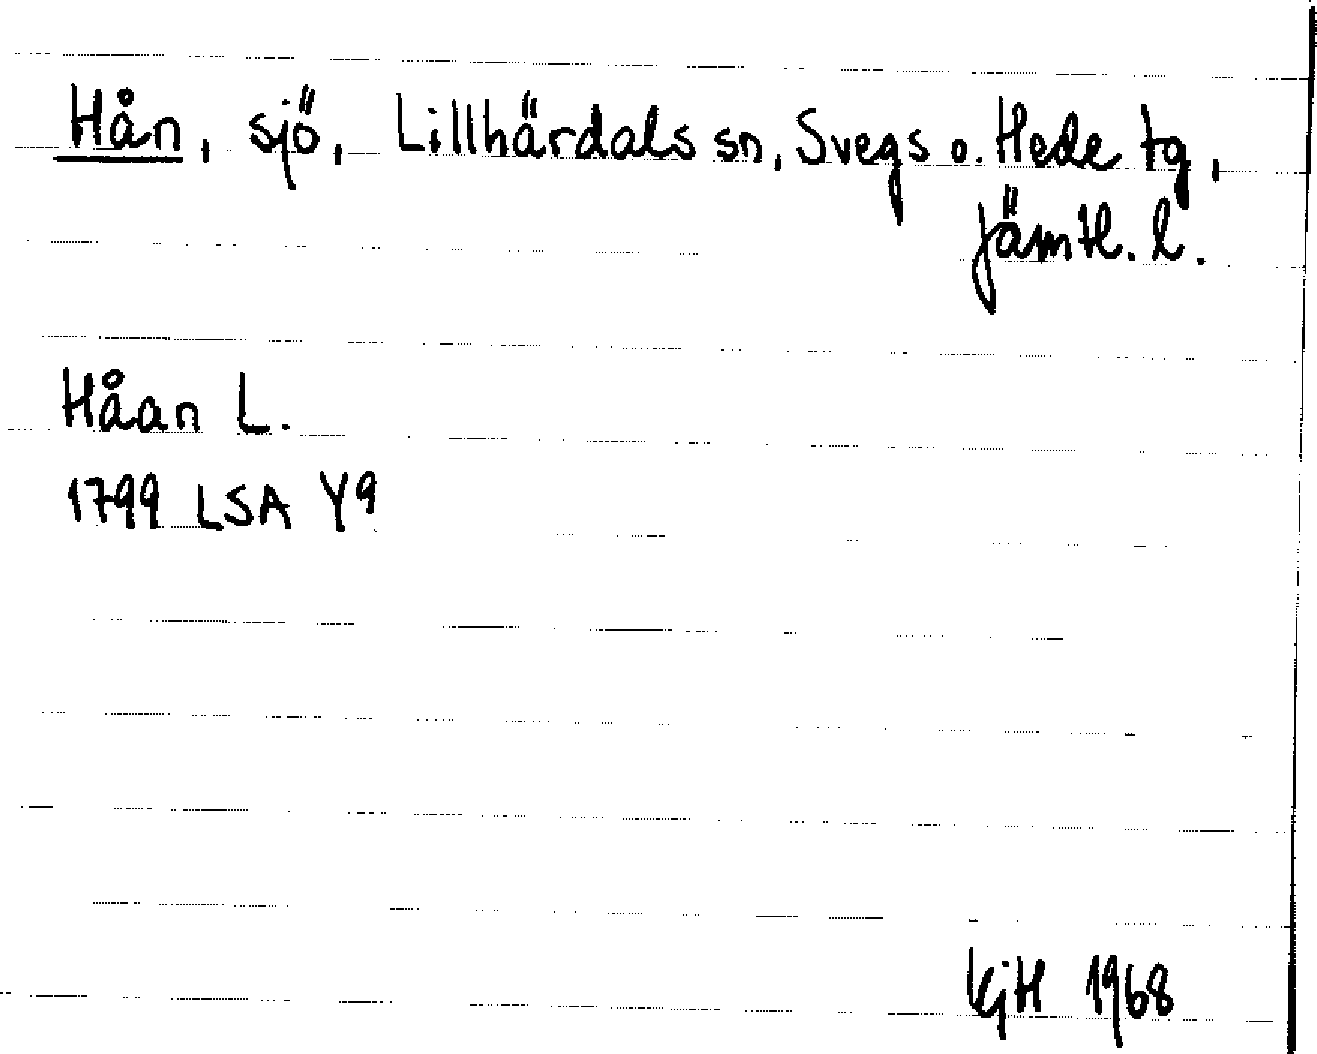 Hån, sjö, Lillhärdals sn, Svegs o. Hede tg,
Jämtl. l.
Håan L.
1799 LSA Y9
KjH 1968